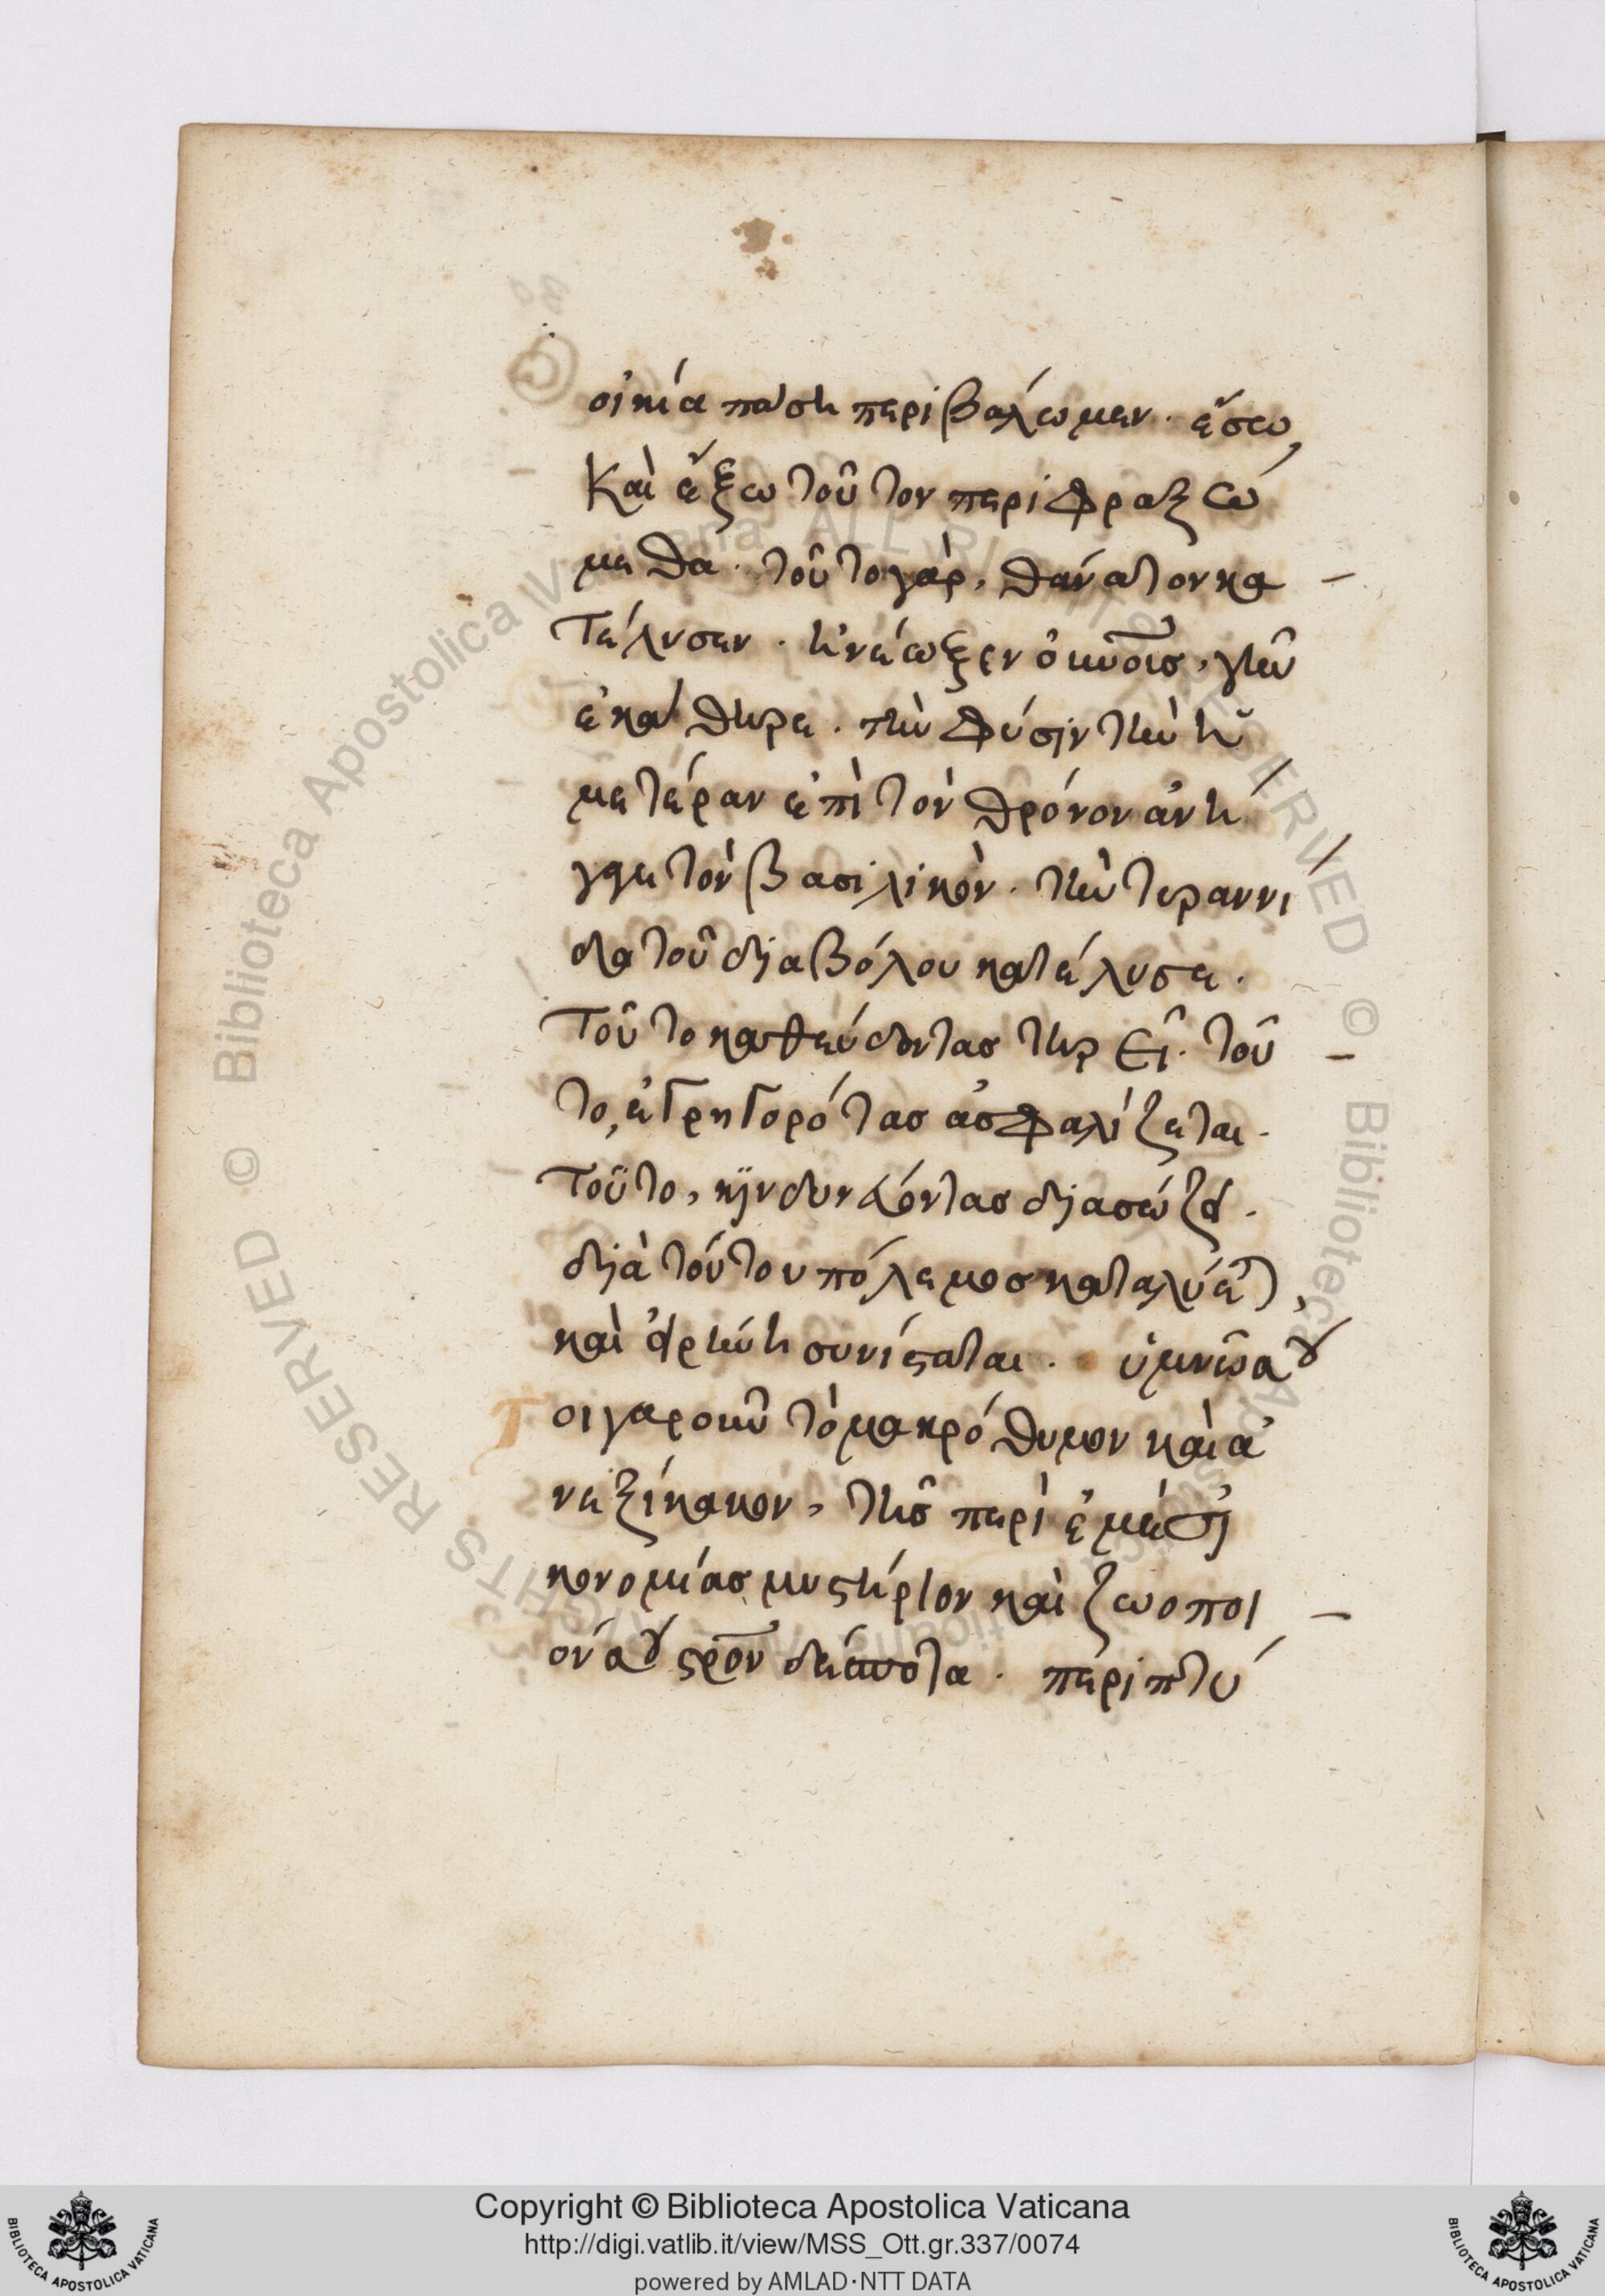 οἰκία πάση περιβαλέωμεν · ἔσω,
Καὶ ἔξω τοῦτον περιφραξώ
μεθα · τοῦτο γὰρ, θάνατον κα
Τέλυσεν · ἠνέωξεν ὁ κύριος, γῆν
ἐκάθηρε · τὴν φύσιν τὴν ἡ
μετέραν ἐπὶ τὸν θρόνον ἀνή
γαγε τὸν βασιλικὸν · τὴν τυραννι
δα τοῦ διαβόλου κατέλυσε ·
Τοῦτο καθεύδοντας τηρεῖ · τοῦ
το, ἐγρηγορότας ἀσφαλίζεται ·
Τοῦτο, κινδυνεύοντας διασώζει ·
διὰ τούτου πόλεμος καταλύεται,
καὶ εἰρήνη συνίσταται · ὑμνῶ
οι γαρ τὸ μακρόθυμον καὶ ἀ
νεξίκακον, τῆς περὶ ἐμὲ οἰ
κονομίας μυστήριον καὶ ζωοποι
όν σταυρὸν δέσποτα · περιπτύ
Copyright © Biblioteca Apostolica Vaticana
http://digi.vatlib.it/view/MSS_Ott.gr.337/0074
powered by AMLAD·NTT DATA
BIBLIOTECA APOSTOLICA VATICANA
BIBLIOTECA APOSTOLICA VATICANA
© Biblioteca Apostolica Vaticana ALL RIGHTS RESERVED